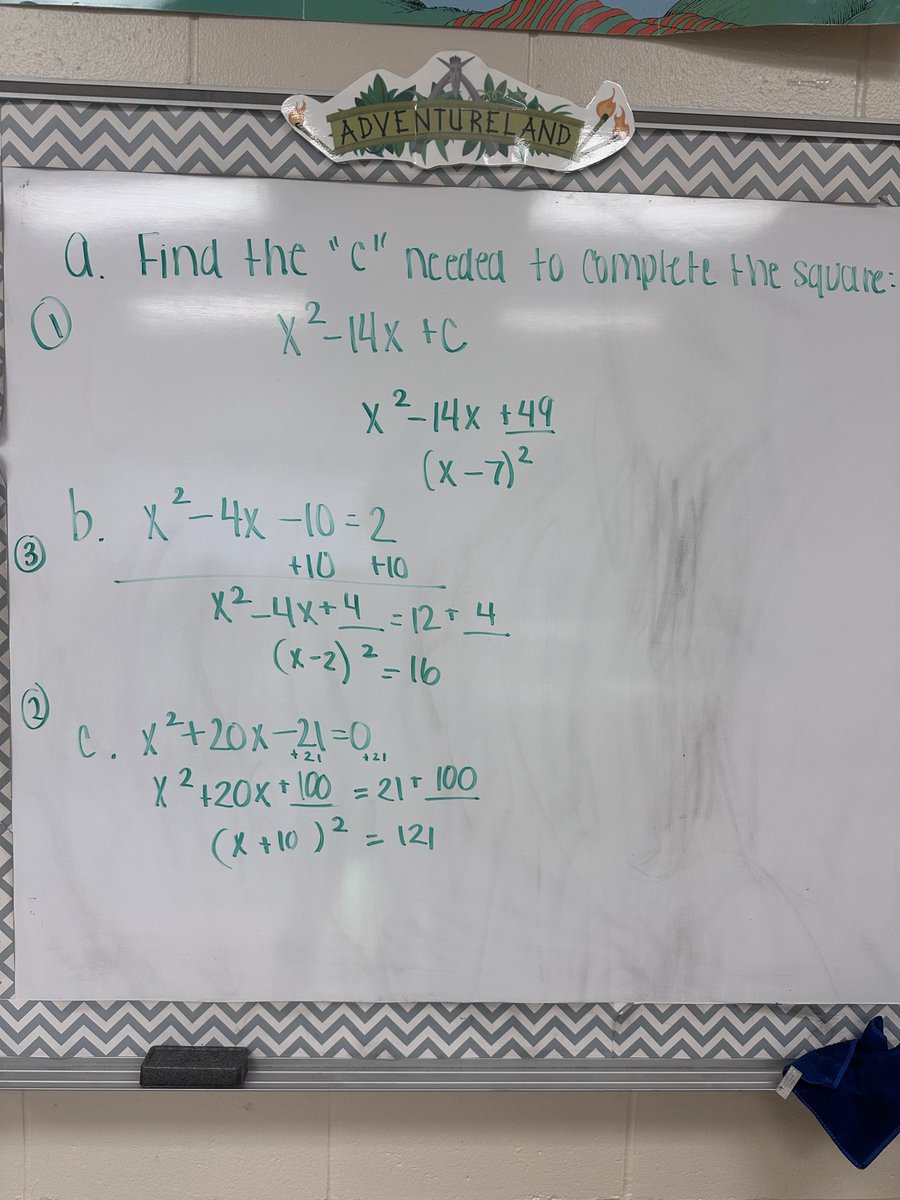 ADVENTURELAND
a. Find the "c" needed to complete the square:
① x²-14x +c
x²-14x +49
(x-7)²
b. x²-4x -10 = 2
③ +10 +10
x²-4x+4 = 12+4
(x-2)² = 16
②
c. x²+20x-21=0
+21 +21
x²+20x+100 = 21+100
(x+10)² = 121